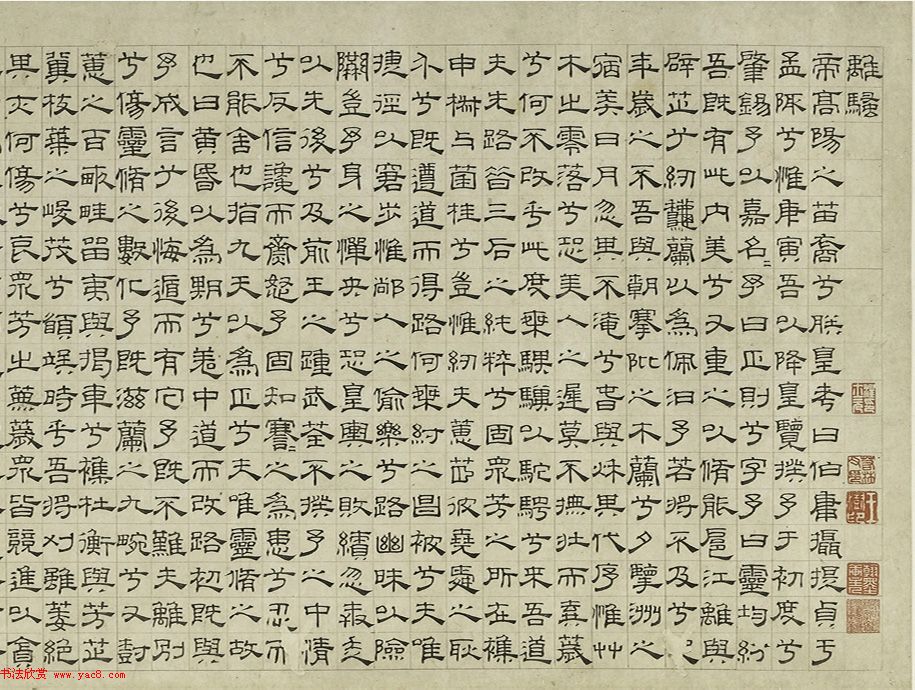 離騷
帝高陽之苗裔兮朕皇考曰伯庸攝提貞于
孟陬兮惟庚寅吾以降皇覽揆予于初度兮
肇錫予以嘉名〻予曰正則兮字予曰靈均紛
吾既有此內美兮又重之以脩能扈江離與
辟芷兮紉秋蘭以為佩汩予若將不及兮恐
年歲之不吾與朝搴阰之木蘭兮夕擥洲之
宿莽日月忽其不淹兮春與秋其代序惟艸
木之零落兮恐美人之遲莫不撫壯而棄穢
兮何不改乎此度乘騏驥以駝騁兮來吾道
夫先路昔三后之純粹兮固衆芳之所在雜
申椒与菌桂兮豈惟紉夫蕙茝彼堯舜之耿
介兮既遵道而得路何桀紂之昌被兮夫唯
捷徑以窘步惟鄙人之偷樂兮路幽昧以險
隘豈予身之憚殃兮恐皇輿之敗績忽奔走
以先後兮及前王之踵武荃不揆予之中情
兮反信讒而齌怒予固知謇〻之為患兮忍而
不能舍也指九天以為正兮夫唯靈脩之故
也曰黃昏以為期兮羌中道而改路初既與
予成言兮後悔遁而有它予既不難夫離別
兮傷靈脩之數化予既滋蘭之九畹兮又樹
蕙之百畝畦留夷與揭車兮雜杜衡與芳芷
冀枝葉之峻茂兮願竢時乎吾將刈雖萎絕
其亦何傷兮哀衆芳之蕪穢衆皆競進以貪
书法欣赏 www.yac8.com